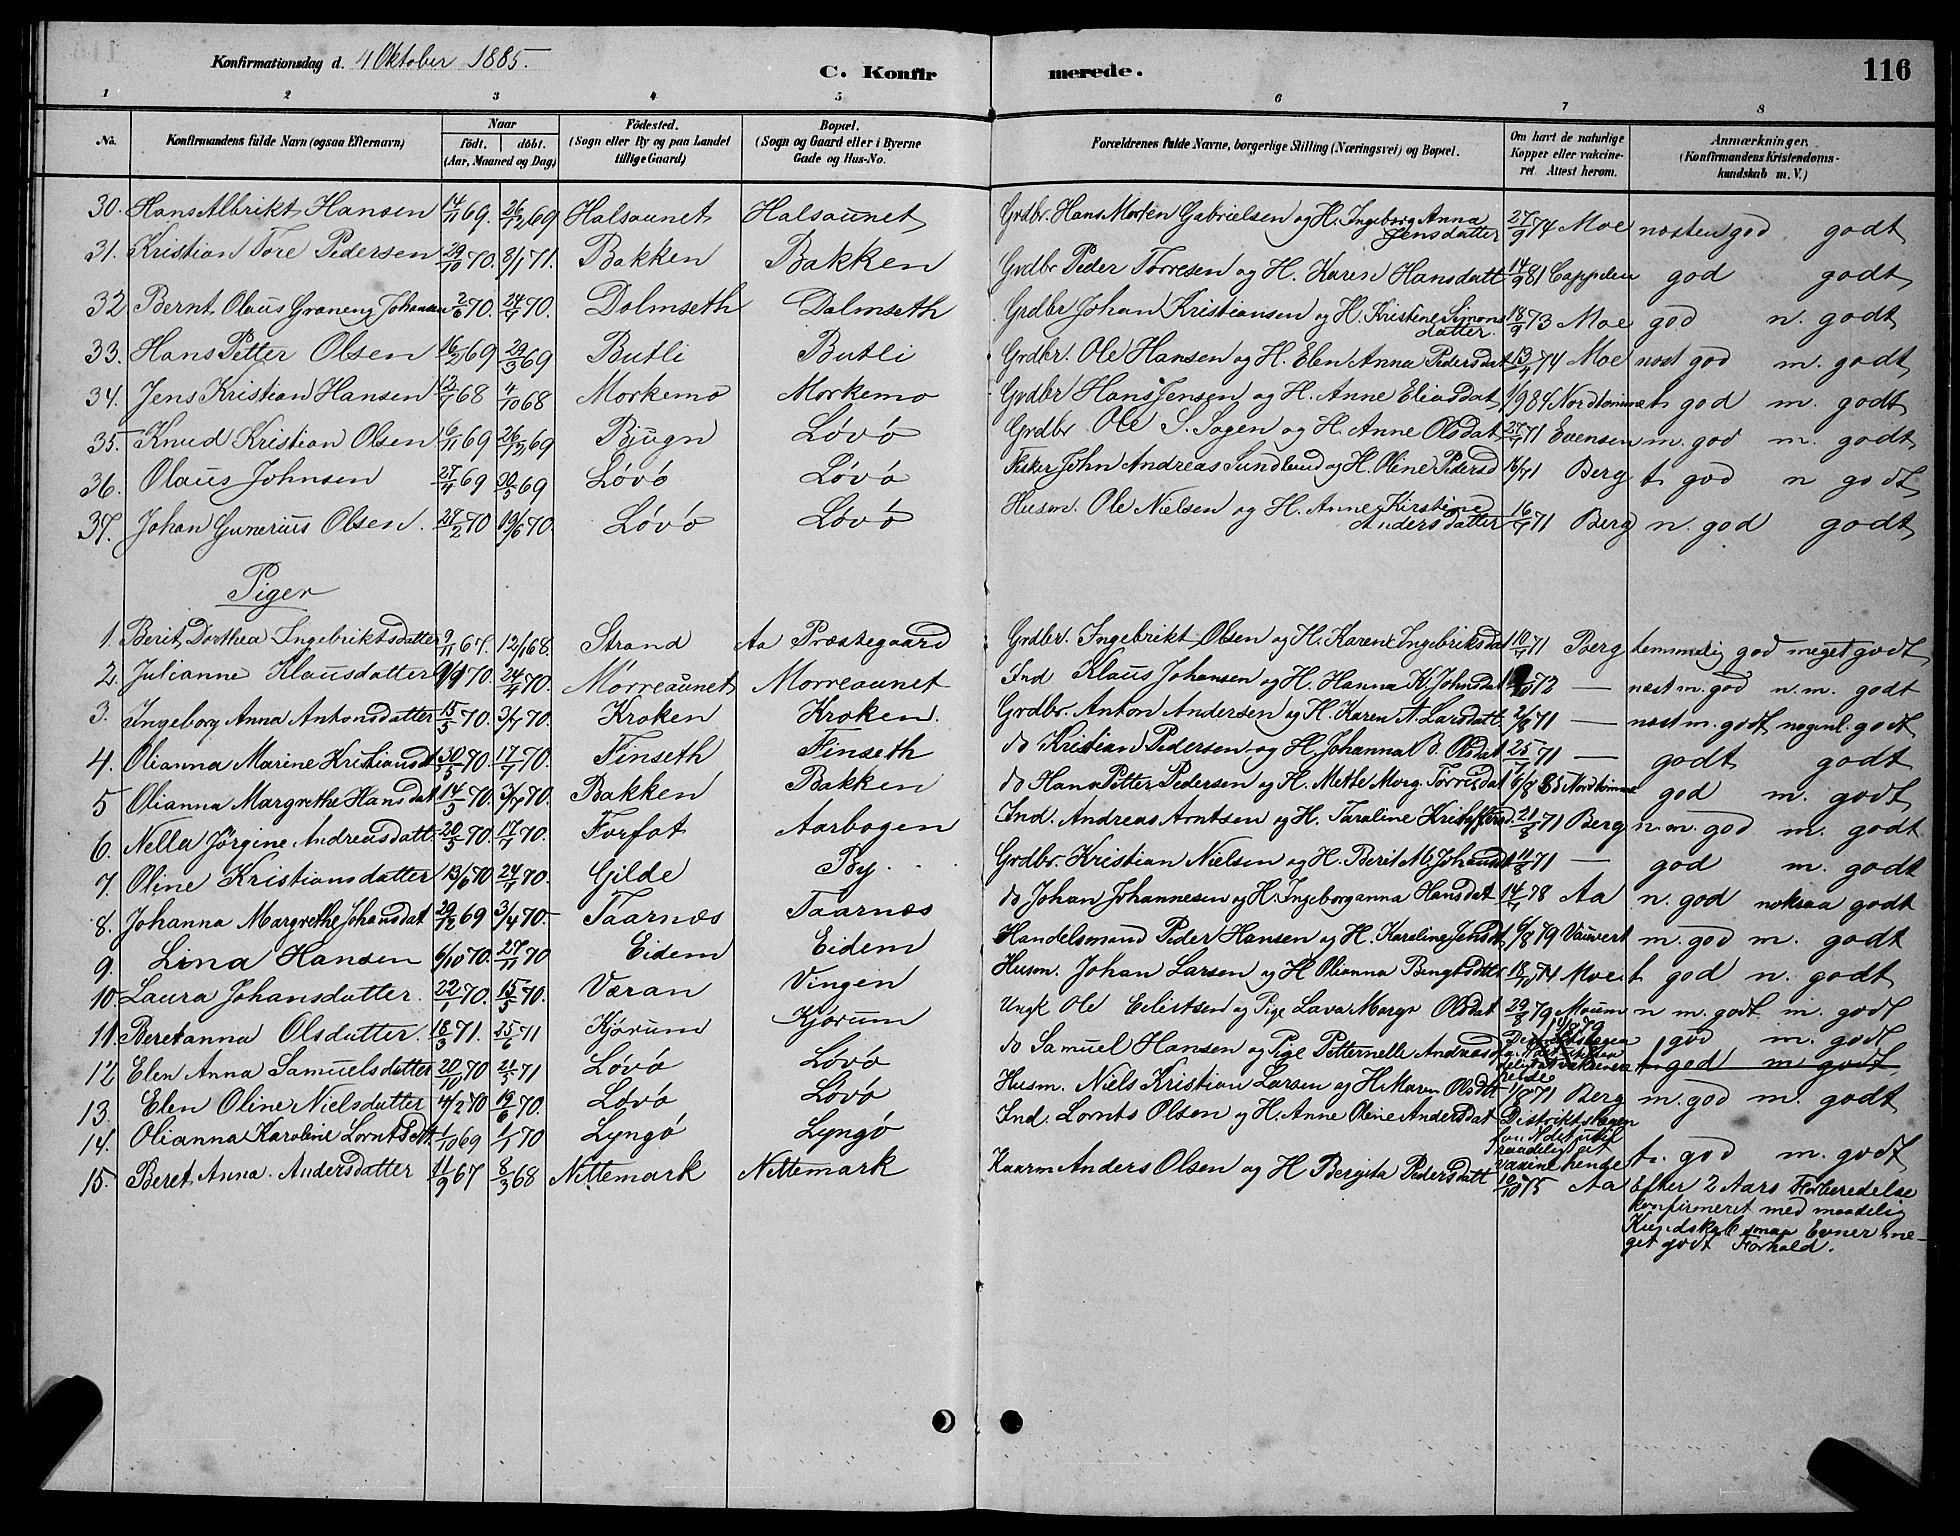 Konfirmationsdag d. 4 Oktober 1885.
C. Konfirmerede.
116
1 2 3 4 5 6 7 8
No. Konfirmandens fulde Navn (ogsaa Efternavn) Naar født. døbt. (Aar, Maaned og Dag) Fødested. (Sogn eller By og paa Landet tillige Gaard) Bopæl. (Sogn og Gaard eller i Byerne Gade og Hus-No. Forældrenes fulde Navne, borgerlige Stilling (Næringsvei) og Bopæl. Om havt de naturlige Kopper eller vakcineret. Attest herom. Anmærkninger. (Konfirmandens Kristendomskundskab m. V.)
30. Hans Albrikt Hansen 14/11 69. 26/12 69 Halsaunet Halsaunet Grdbr. Hans Morten Gabrielsen og H. Ingeborg Anna Jensdatter 27/9 74 Moe næsten god godt
31. Kristian Tore Pedersen 29/10 70. 8/1 71. Bakken Bakken Grdbr Peder Torresen og H. Karen Hansdatt 14/9 81 Cappelen god godt
32 Bernt Olaus Graneng Johansen 2/6 70. 24/7 70. Dolmseth Dalmseth Grdbr Johan Kristiansen og H. Kristene Simonsdatter. 18/9 73 Moe god n. godt
33. Hans Petter Olsen 16/2 69 29/3 69 Butli Butli Grdbr. Ole Hansen og H. Elen Anna Pedersdat 13/7 74 Moe næst god m. godt
34. Jens Kristian Hansen 12/7 68 4/10 68 Morkemo Morkemo Grdbr Hans Jensen og H. Anne Eliasdat 1/9 84 Nordtømme t. god m. godt
35. Knud Kristian Olsen 16/11 69 26/12 69 Bjugn Løvø Grdbr Ole S. Sagen og H. Anne Olsdat 27/7 71 Evensen m. god m. godt
36. Olaus Johnsen 27/4 69 20/5 69 Løvø Løvø Fisker John Andreas Sundlund og H. Oline Pedersd 16/7 71 Berg t. god n godt
37. Johan Gunerius Olsen. 27/2 70 19/6 70. Løvø Løvø Husm. Ole Nielsen og H. Anne Kirstine Andersdatter 16/7 71 Berg n. god godt
Piger
1. Berit Dorthea Ingebriktsdatter 9/11 67. 12/1 68. Strand Aa Præstegaard Grdbr. Ingebrikt Olsen og H. Karen Ingebriksdat 10/7 71 Berg temmelig god meget godt
2. Julianne Klausdatter 9/1 70. 24/4 70. Mørreaunet Mørreaunet Ind Klaus Johansen og H. Hanna K. Johnsdat 72 — næst m. god n. m. godt
3. Ingeborg Anna Antonsdatter 15/5 70. 3/7 70. Kroken Kroken. Grdbr. Anton Andersen og H. Karen A. Larsdatt. 2/8 71 — næst m. godt nogenl. godt
4. Olianna Marine Kristiansdt 30/5 70. 17/7 70. Finseth Finseth do Kristian Pedersen og H. Johanna B. Olsdat 25/7 71 — godt godt
5 Olianna Margrethe Hansdat 14/5 70. 3/7 70. Bakken Bakken do Hans Petter Pedersen og H. Methe Marg. Torresdat 6/8 85 Nordtømme god m. godt
6. Nella Jørgine Andreasdatt. 20/5 70. 17/7 70. Forfot Aarbogen Ind. Andreas Arntsen og H. Taraline Kristoffersd. 21/8 71 Berg n. m. god m. godt
7. Oline Kristiansdatter 13/6 70 24/7 70. Gilde By. Grdbr. Kristian Nielsen og H. Berit M. Johansdt 11/8 71 — god m. godt
8. Johanna Margrethe Johansdat 29/12 69 3/4 70. Taarnes Taarnes do Johan Johannesen og H. Ingeborganna Hansdat 14/7 78 Aa n. god noksaa godt
9. Lina Hansen 6/10 70. 27/11 70 Eidem Eidem Handelsmand Peder Hansen og H. Karoline Jensdt 6/8 79 Vauvert m. god m. godt
10. Laura Johansdatter. 22/1 70. 15/5 70. Væran Vingen Husm. Johan Larsen og H Olianna Bengtsdatter 18/7 74 Moe t god n. godt
11. Beretanna Olsdatter. 18/3 71. 25/6 71 Kjørum Kjørum Ungk Ole Eilertsen og Pige Lava Margr Olsdat 29/8 79 Moum n m. godt m. godt
12 Elen Anna Samuelsdatter 20/10 70 21/5 71 Løvø Løvø do Samuel Hansen og Pige Petternelle Andreasd god m. godt
t. god m godt
13. Elen Oline Nielsdatter 4/2 70 19/6 70. Løvø Løvø Husm. Niels Kristian Larsen og H. Maren Olsdtt 11/8 71 Berg m. god m. godt
14. Olianna Karoline Lorntsdtt. 1/10 69 1/1 70 Lyngø Lyngø Ind. Lornts Olsen og H. Anne Oline Andersdat Distriktslægen vaxine hende t. god m. godt
15. Beret Anna Andersdatter 11/9 67 8/3 68 Nettemark Nettemark Kaarm Anders Olsen og H Bergita Pedersdatt 10/10 75 Aa Efter 2 Aars Forberedelse
konfirmeret med maadelig
Kundskab smaa Evner me-
get godt Forhold.